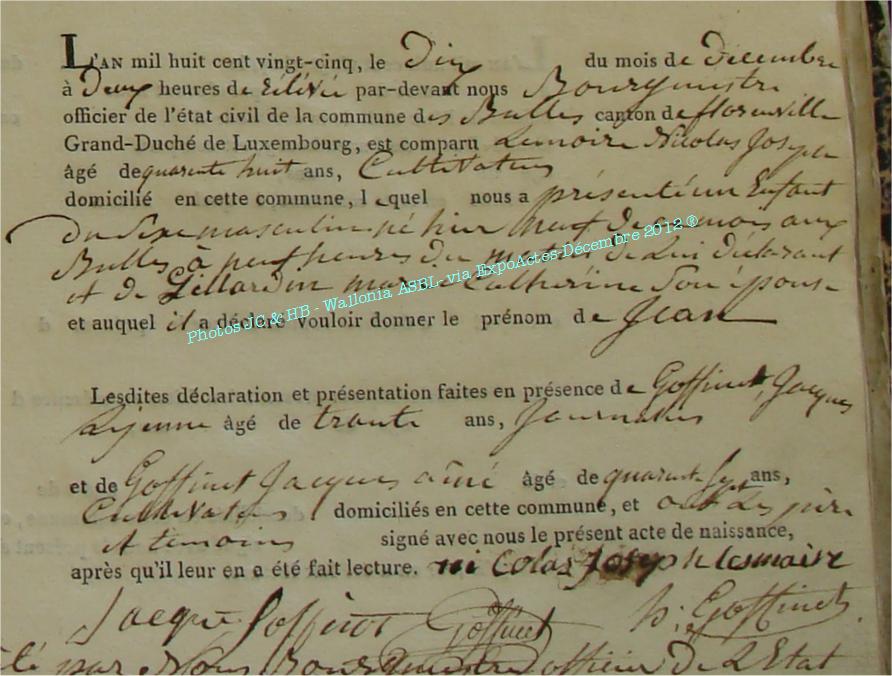 L'AN mil huit cent vingt-cinq, le Dix du mois de décembre
à Deux heures de rélévée par-devant nous Bourgmestre
officier de l'état civil de la commune des Bulles canton de florenville
Grand-Duché de Luxembourg, est comparu Lemoire Nicolas Joseph
âgé de quarante huit ans, Cultivateur
domicilié en cette commune, lequel nous a présenté un Enfant
Du Sexe masculin né hier neuf de ce mois aux
Bulles à neuf heures du matin de Lui déclarant
et de Gillardin marie Catherine Son épouse
et auquel il a déclaré vouloir donner le prénom de Jean
Photos JC & HB - Wallonia ASBL- via ExpoActes-Décembre 2012®
Lesdites déclaration et présentation faites en présence de Goffinet, Jacques
Lejeune âgé de trante ans, Journalier
et de Goffinet Jacques ainé âgé de quarante Sept ans,
Cultivateur domiciliés en cette commune, et ont Les père
et temoins signé avec nous le présent acte de naissance,
après qu'il leur en a été fait lecture. nicolas Joseph lesmaire
Jacque Goffinet Goffinet h: Goffinet
par Nous Bourgmestre officier De L'Etat